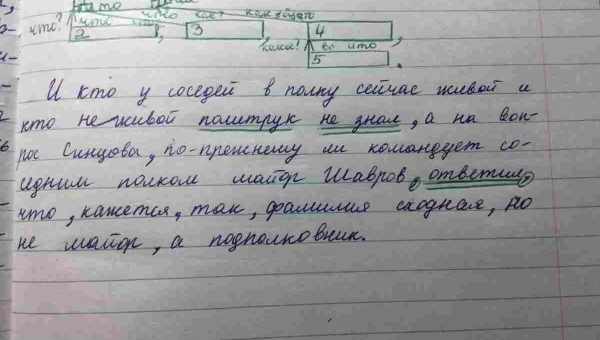 что?
2, 3, 4,
какое?
5.
И кто у соседей в полку сейчас живой и
кто не живой политрук не знал, а на воп-
рос Синцова, по-прежнему ли командует со-
седним полком майор Шавров, ответил,
что, кажется, так, фамилия сходная, но
не майор, а подполковник.